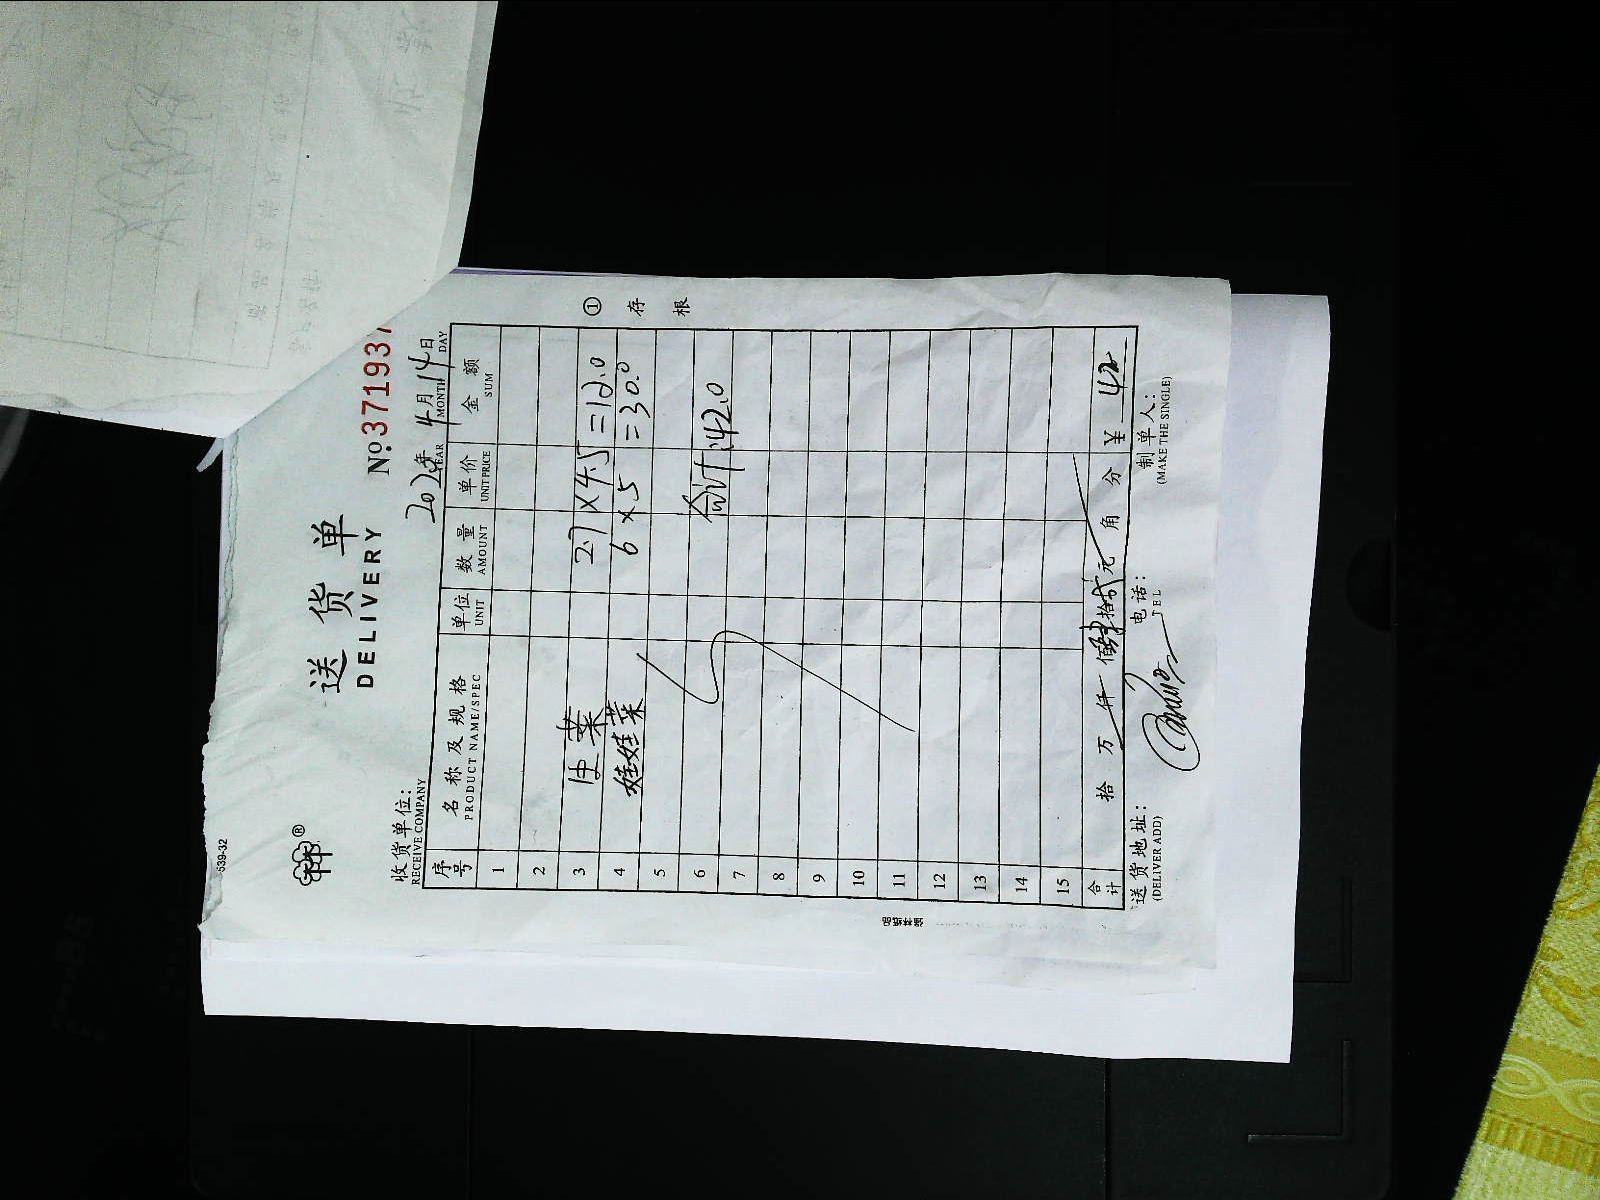 539-32
送货单
DELIVERY
№:371937
收货单位:
RECEIVE COMPANY
年 4月14日
YEAR MONTH DAY
序号 名称及规格 单位 数量 单价 金额
PRODUCT NAME/SPEC UNIT AMOUNT UNIT PRICE SUM
1
2
3 生菜 2.7 × 4.5 = 12.0
4 娃娃菜 6 × 5 = 30.0
5
6 合计:42.0
7
8
9
10
11
12
13
14
15
合计 拾 万 仟 佰肆拾贰元 角 分 ¥ 42
送货地址: 电话: 制单人:
(DELIVER ADD) TEL (MAKE THE SINGLE)
① 存根